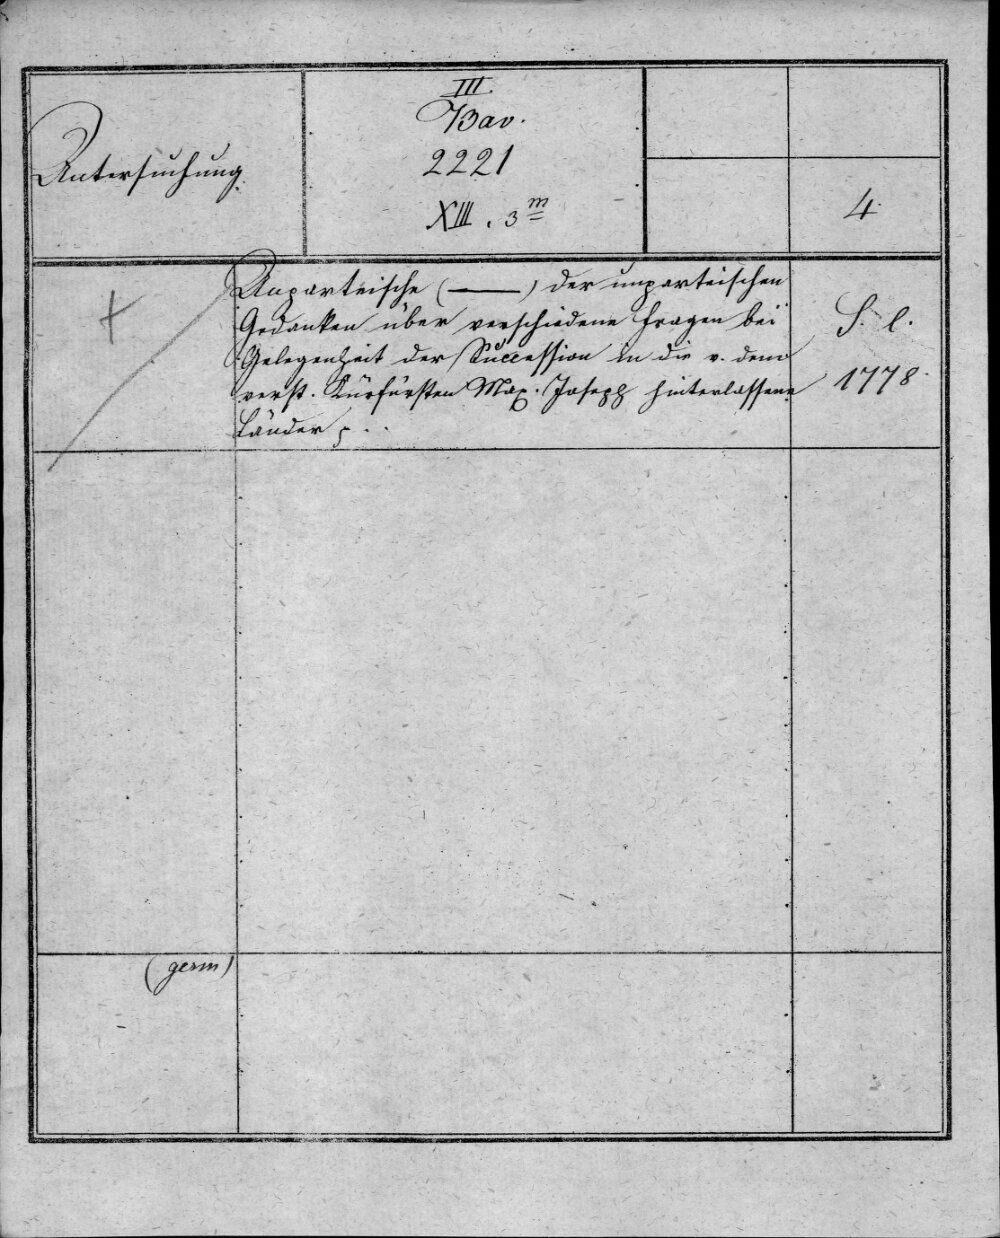 Untersuchung.
III.
Bav.
2221
XIII. 3 m
4.
Unparteiische (———) der unparteiischen
Gedanken über verschiedene Fragen bei
Gelegenheit der Succession in die v. dem
verst. Kurfürsten Max. Joseph hinterlassene
Länder p. . .
S. l.
1778.
+
(germ)